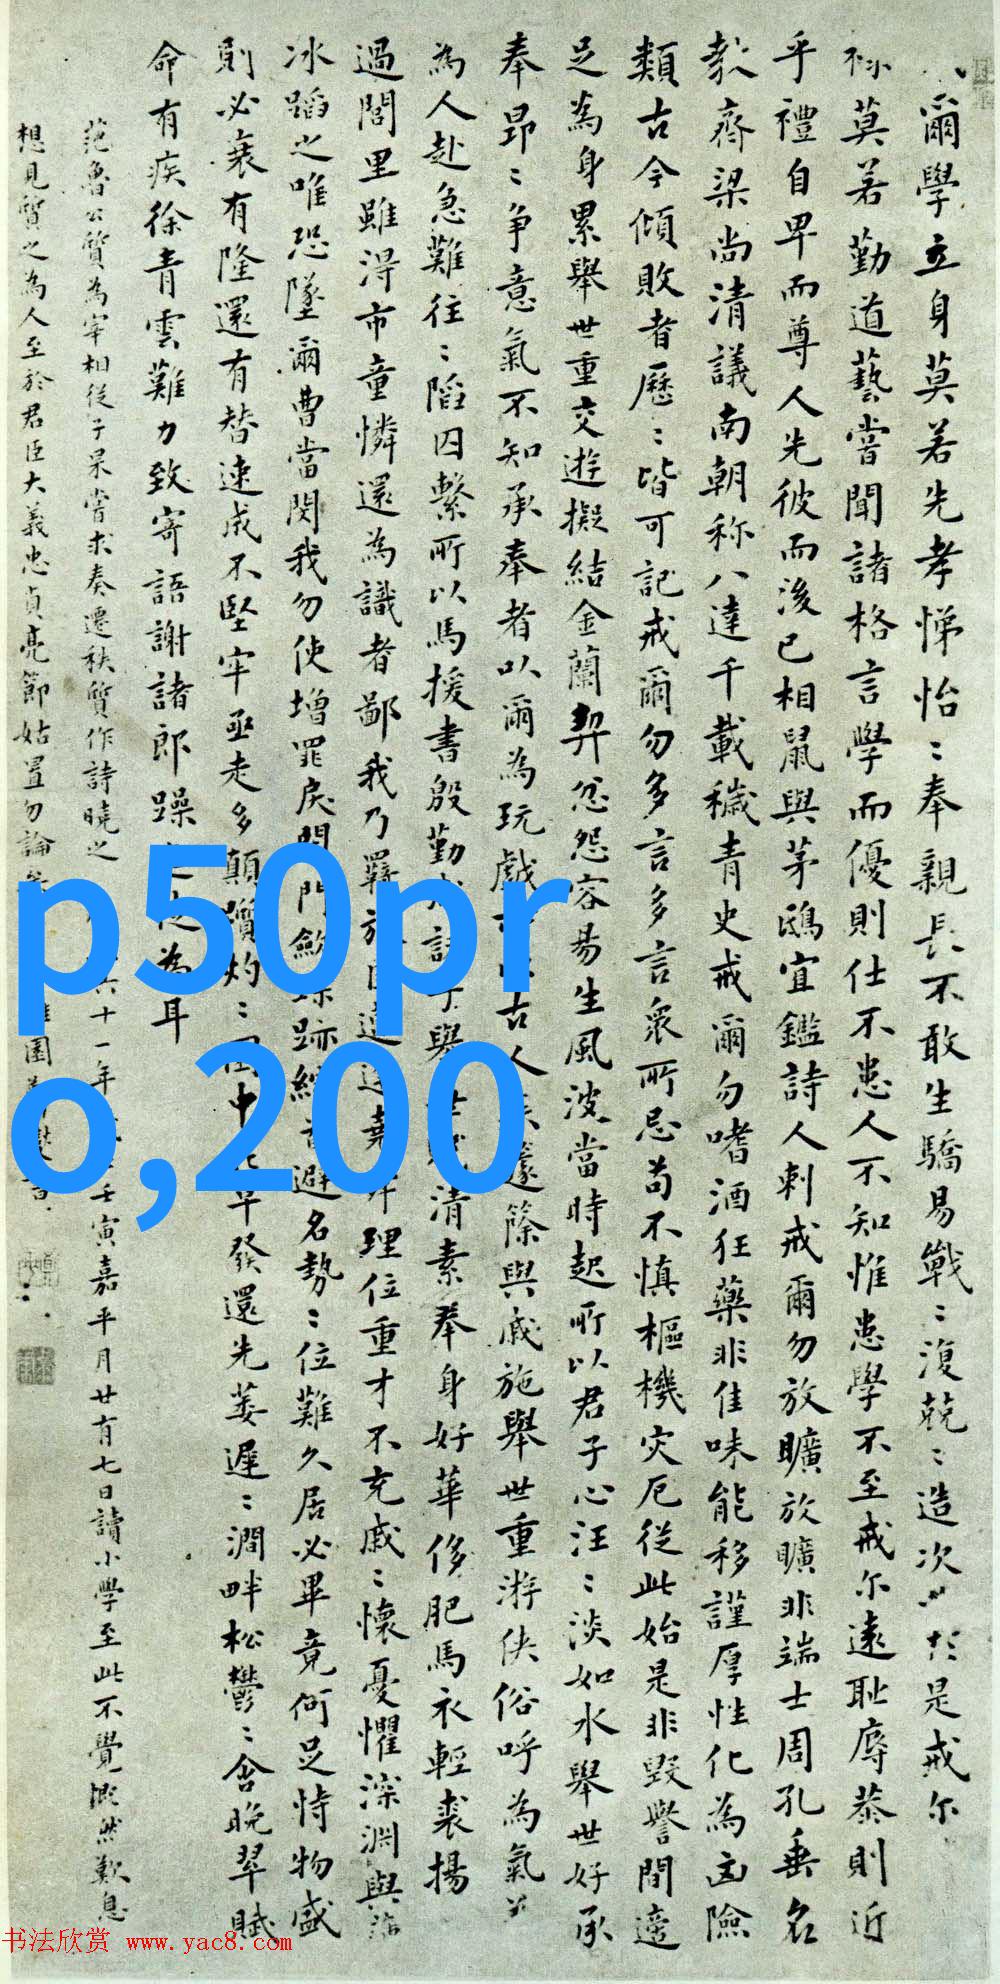 爾學立身莫若先孝悌怡〻奉親長不敢生驕易戰〻復兢〻造次於是戒尔
祿莫若勤道藝嘗聞諸格言學而優則仕不患人不知惟患學不至戒尔遠恥辱恭則近
乎禮自卑而尊人先彼而後己相鼠與茅鴟宜鑑詩人刺戒爾勿放曠放曠非端士周孔垂名
教齊梁尚清議南朝称八達千載穢青史戒爾勿嗜酒狂藥非佳味能移謹厚性化為凶險
類古今傾敗者歷〻皆可記戒爾勿多言多言衆所忌苟不慎樞機灾厄從此始是非毀譽間適
足為身累舉世重交遊擬結金蘭契忿怨容易生風波當時起所以君子心汪〻淡如水舉世好承
奉昂〻争意氣不知承奉者以爾為玩戲古人疾籧篨與戚施舉世重游俠俗呼為氣
為人赴急難往〻陷囚繫所以馬援書殷勤戒諸子舉世清素奉身好華侈肥馬衣輕裘揚
過閭里雖淂市童憐還為識者鄙我乃羈旅臣遭堯舜理位重才不充戚〻懷憂懼深淵與
冰蹈之唯恐墜爾曹當閔我勿使增罪戾閉門歛蹤跡縮避名勢〻位難久居必畢竟何足恃物盛
則必衰有隆還有替速成不堅牢亟走多顛躓灼〻園中花早發還先萎遲〻澗畔松鬱〻含晚翠賦
命有疾徐青雲難力致寄語謝諸郎躁為耳
范魯公質為宰相従子杲嘗求奏遷秩質作詩曉之十一年壬寅嘉平月廿有七日讀小學至此不覺慨然歎息
想見質之為人至於君臣大義忠貞亮節姑置勿論園書
p50pr
o,200
书法欣赏 www.yac8.com